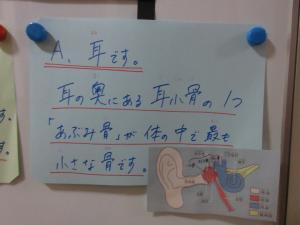 A、耳です。
耳の奥にある耳小骨の1つ
「あぶみ骨」が体の中で最も
小さな骨です。